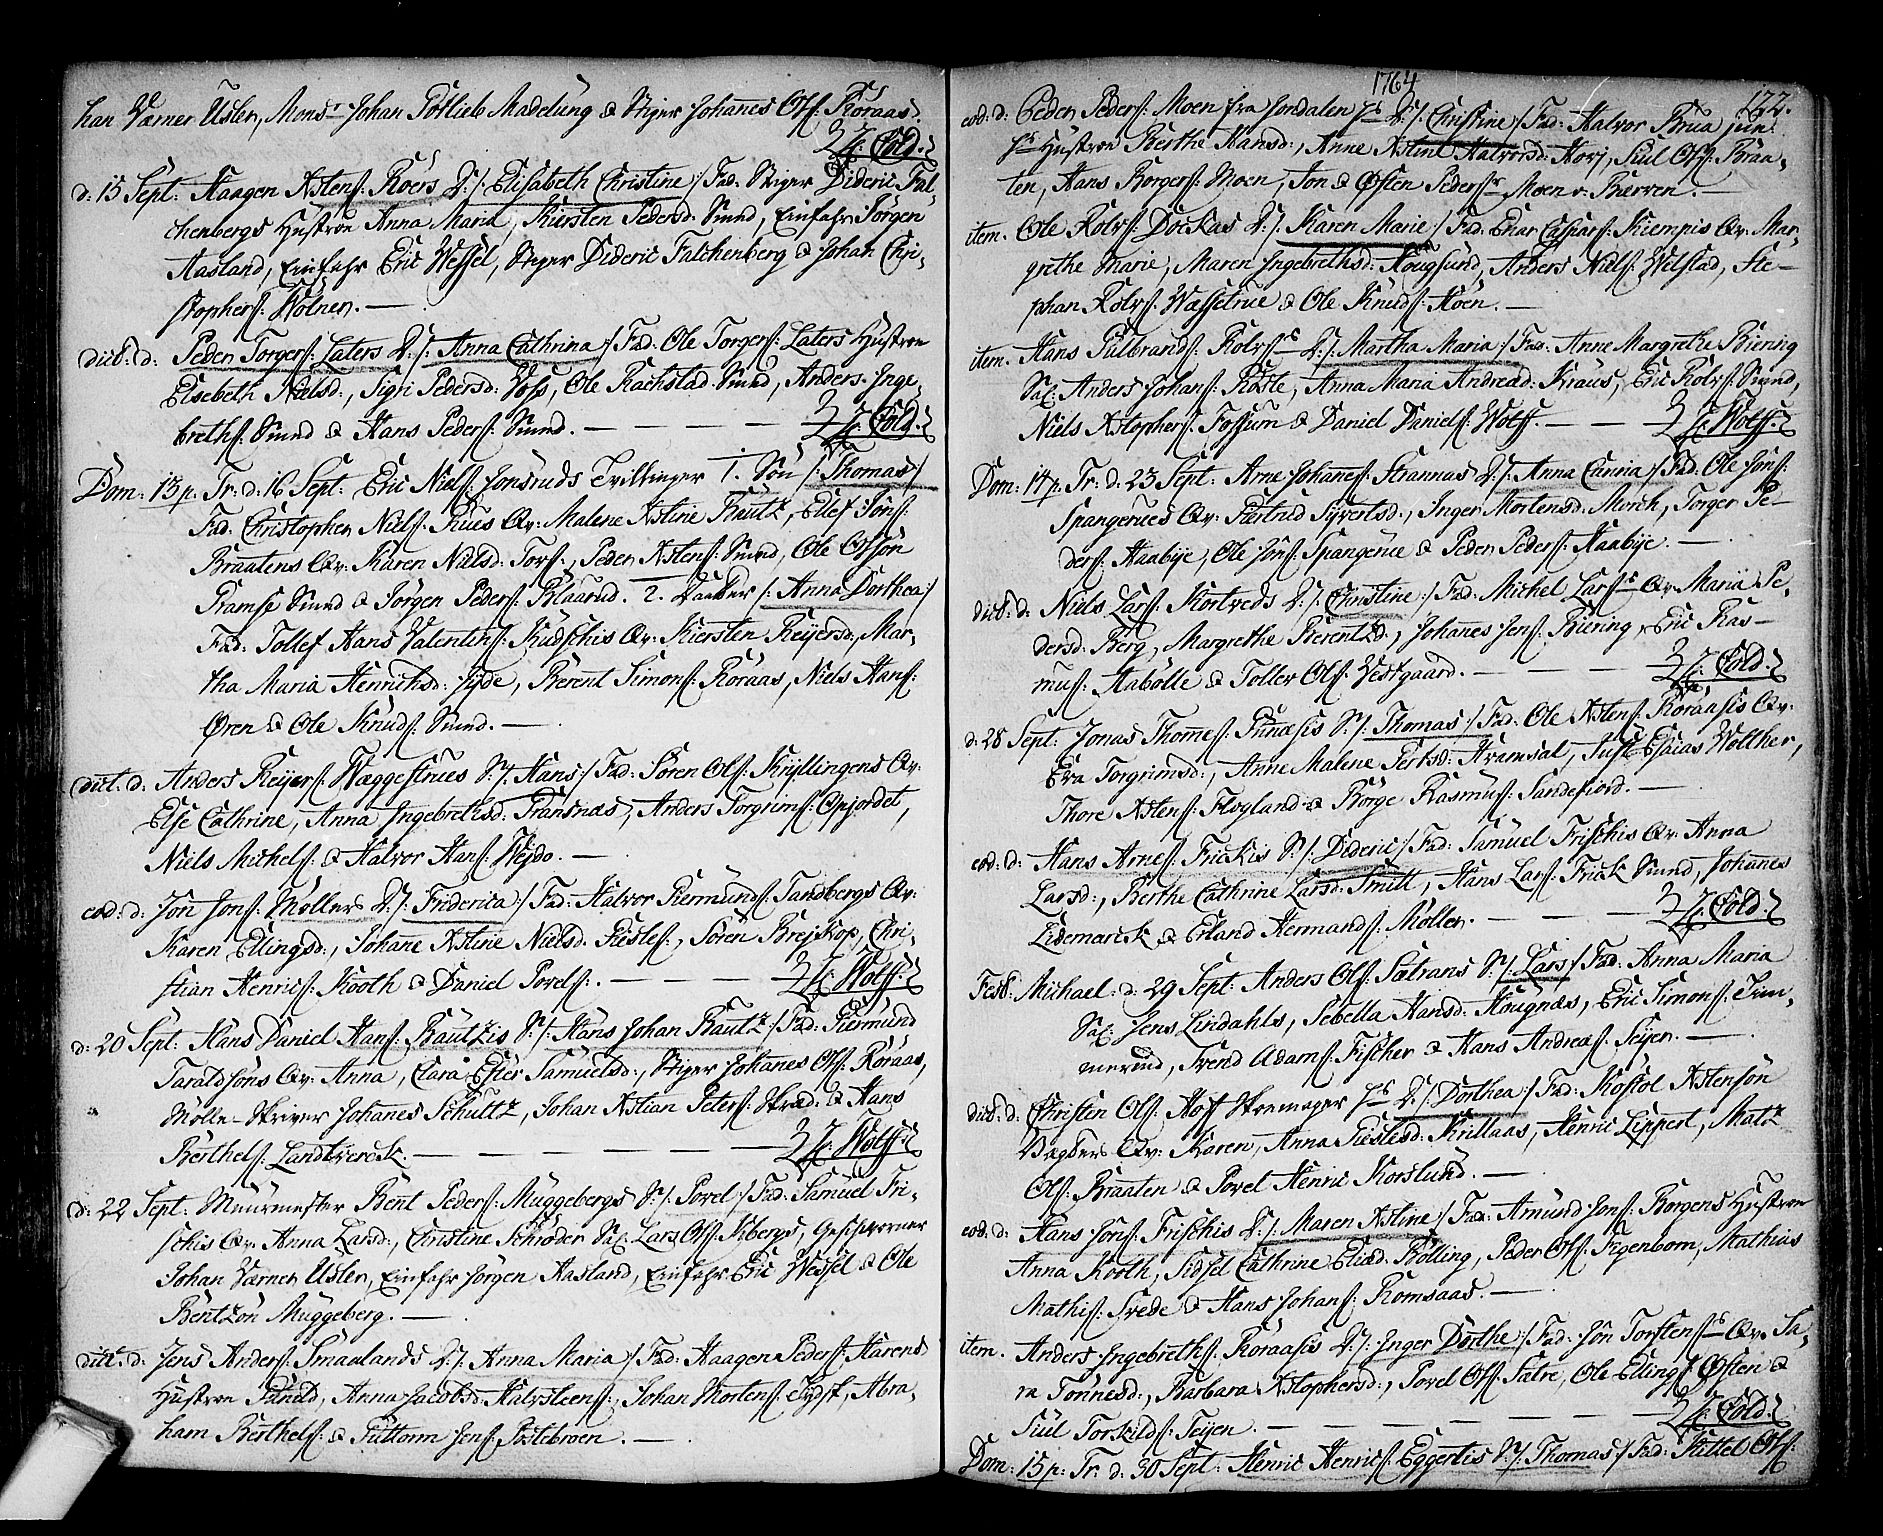 han Værner Usler, Monsr Johan Gotlieb Madelung & Stiger Johanes Ols: Roraas.
Cold.
d: 15 Sept: Haagen Xstens: Roers D:/: Elisabeth Christine:/ Fad: Stiger Dideric Fal-
chenbergs Hustroe Anna Maria, Kirsten Pedersd: Smed, Einfahr Jørgen
Aasland, Einfahr Eric Wessel, Stiger Dideric Falchenberg & Johan Chri-
stophers: Wolner. —
dict: d: Peder Torgers: Laters D:/: Anna Cathrina:/ Fad: Ole Torgers: Laters Hustroe
Elsebeth Nielsd:, Sigri Pedersd: Voss, Ole Rachstad Smed, Anders Inge-
breths: Smed & Hans Peders: Smed. — — — Cold.
Dom: 13 p: Tr: d: 16 Sept: Eric Niels: Jonsruds Tvillinger 1. Søn /: Thomas:/
Fad: Christopher Niels: Rues Qv: Malene Xstine Bautz, Ellef Jons:
Braatens Qv: Karen Nielsd: Tors:, Peder Xstens: Smed, Ole Olsøn
Ramse Smed & Jørgen Peders: Blaarud. 2. Datter /: Anna Dorthea:/
Fad: Tollef Hans Valentins: Kudschis Qv: Kiersten Reyersd:, Mar-
tha Maria Henrichsd: Jyde, Berent Simons: Roraas, Niels Hans:
Øren & Ole Knuds: Smed. —
dict: d: Anders Reyers: Wæggestrues S:/: Hans:/ Fad: Søren Ols: Kyllingens Qv:
Else Cathrine, Anna Ingebrethsd: Transnæs, Anders Torgrims: Opjordet,
Niels Michels: & Halvor Hans: Wejdo. —
eod: d: Jon Jons: Møllers D:/: Friderica:/ Fad: Halvor Giermunds: Sandbergs Qv:
Karen Ellingsd:, Johane Xstine Nielsd: Fiesles:, Søren Brejskop, Chri-
stian Henrics: Kooth & Daniel Povels: — — Wolff.
d: 20 Sept: Hans Daniel Hans: Bautzis S:/: Hans Johan Bautz:/ Fad: Giermund
Taraldsøns Qv: Anna, Clara Ester Samuelsd:, Stiger Johanes Ols: Roraas,
Mølle-Skriver Johanes Schultz, Johan Xstian Peters: Strad: & Hans
Berthels: Landtverck. — — — Wolff.
d: 22 Sept: Muurmester Bent Peders: Muggebergs S:/: Povel:/ Fad: Samuel Fri-
schis Qv: Anna Larsd:, Christine Schrøder Lars Ols: Xbergs, Geschworner
Johan Værner Usler, Einfahr Jørgen Aasland, Einfahr Eric Wessel & Ole
Bentzøn Muggeberg. —
dict: d: Jens Anders: Smaalands D:/: Anna Maria:/ Fad: Haagen Peders: Harens
Hustroe Randd, Anna Jacobsd: Halvsteens:, Johan Mortens: Tydst, Abra-
ham Berthels: & Guttorm Jens: Postebroen. —
1764
122.
eod: d: Peder Peders: Moen fra Jondalen Hs D:/: Christine:/ Fad: Halvor Brua jun:
Hs Hustroe Berthe Hansd:, Anne Xstine Halvorsd: Hovj, Juul Ols: Braa-
ten, Hans Borgers: Moen, Jon & Østen Pedersr Moen v: Bierven. —
item. Ole Rolvs: Dockas D:/: Karen Marie:/ Fad: Enar Caspars: Kiempis Qv: Mar-
grethe Marie, Maren Ingebrethsd: Hougsund, Anders Niels: Welstad, Ste-
phan Rolvs: Wæssetrue & Ole Knuds: Hoen. —
item. Hans Gulbrands: Rolvss D:/: Martha Maria:/ Fad: Anne Margrethe Biering
Anders Johans: Røste, Anna Maria Andread: Kraus, Eric Rolvs: Smed,
Niels Xstophers: Fossum & Daniel Daniels: Wolff. — — Wolff.
Dom: 14 p: Tr: d: 23 Sept: Arne Johanes: Strannas D:/: Anna Cairia:/ Fad: Ole Jons:
Spangerues Qv: Giertrud Syvertsd:, Inger Mortensd: Morch, Torger Pe-
ders: Haabye, Ole Jons: Spangerue & Peder Peders: Haabye. —
dict: d: Niels Lars: Kortveds D:/: Christine:/ Fad: Michel Larss Qv: Maria Pe-
dersd: Berg, Margrethe Berentzd:, Johanes Jens: Biering, Eric Ras-
mus: Aabolle & Toller Ols: Vestgaard. — — Cold.
d: 28 Sept: Jonas Thomes: Funæsis S:/: Thomas:/ Fad: Ole Xstens: Roraasis Qv:
Eva Torgrimsd:, Anne Malene Gertsd: Hvamsal, Just Esaias Wolther,
Thore Xstens: Flogland & Børge Rasmus: Sandefiord. —
eod: d: Hans Arnes: Frickis S:/: Dideric:/ Fad: Samuel Frischis Qv: Anna
Larsd:, Berthe Cathrine Larsd: Smitt, Hans Lars: Frick Smed, Johanes
Lidemarck & Erland Hermands: Møller. — — Cold.
Fest: Michael: d: 29 Sept: Anders Ols: Sætrans S:/: Lars:/ Fad: Anna Maria
Jens Lindahls, Sebella Hansd: Hougnæs, Eric Simons: Tim-
merud, Svend Adams: Fischer & Hans Andreas: Seyer. —
dict: d: Christen Ols: Hoft Skoemager Hs D:/: Dorthea:/ Fad: Kostol Xstensøn
Bagders Qv: Karen, Anna Giestesd: Krillaas, Henric Lippert, Matz
Ols: Braaten & Povel Henric Korslund. —
eod: d: Hans Jons: Frischis D:/: Maren Xstine:/ Fad: Amund Jons: Borgens Hustroe
Anna Kooth, Sidsel Cathrine Eliæd: Bølling, Peder Ols: Fegenborn, Mathias
Mathis: Svede & Hans Johans: Romsaas. —
item. Anders Ingebreths: Roraasis D:/: Inger Dorthe:/ Fad: Jon Torstenss Qv: Sa-
ra Tonnesd:, Barbara Xstophersd:, Povel Ols: Satre, Ole Ellings: Østen &
Juul Torkilds: Teijen. — — — Cold.
Dom: 15 p: Tr: d: 30 Sept: Henric Henrics: Eggertis S:/: Thomas:/ Fad: Kittel Ols: